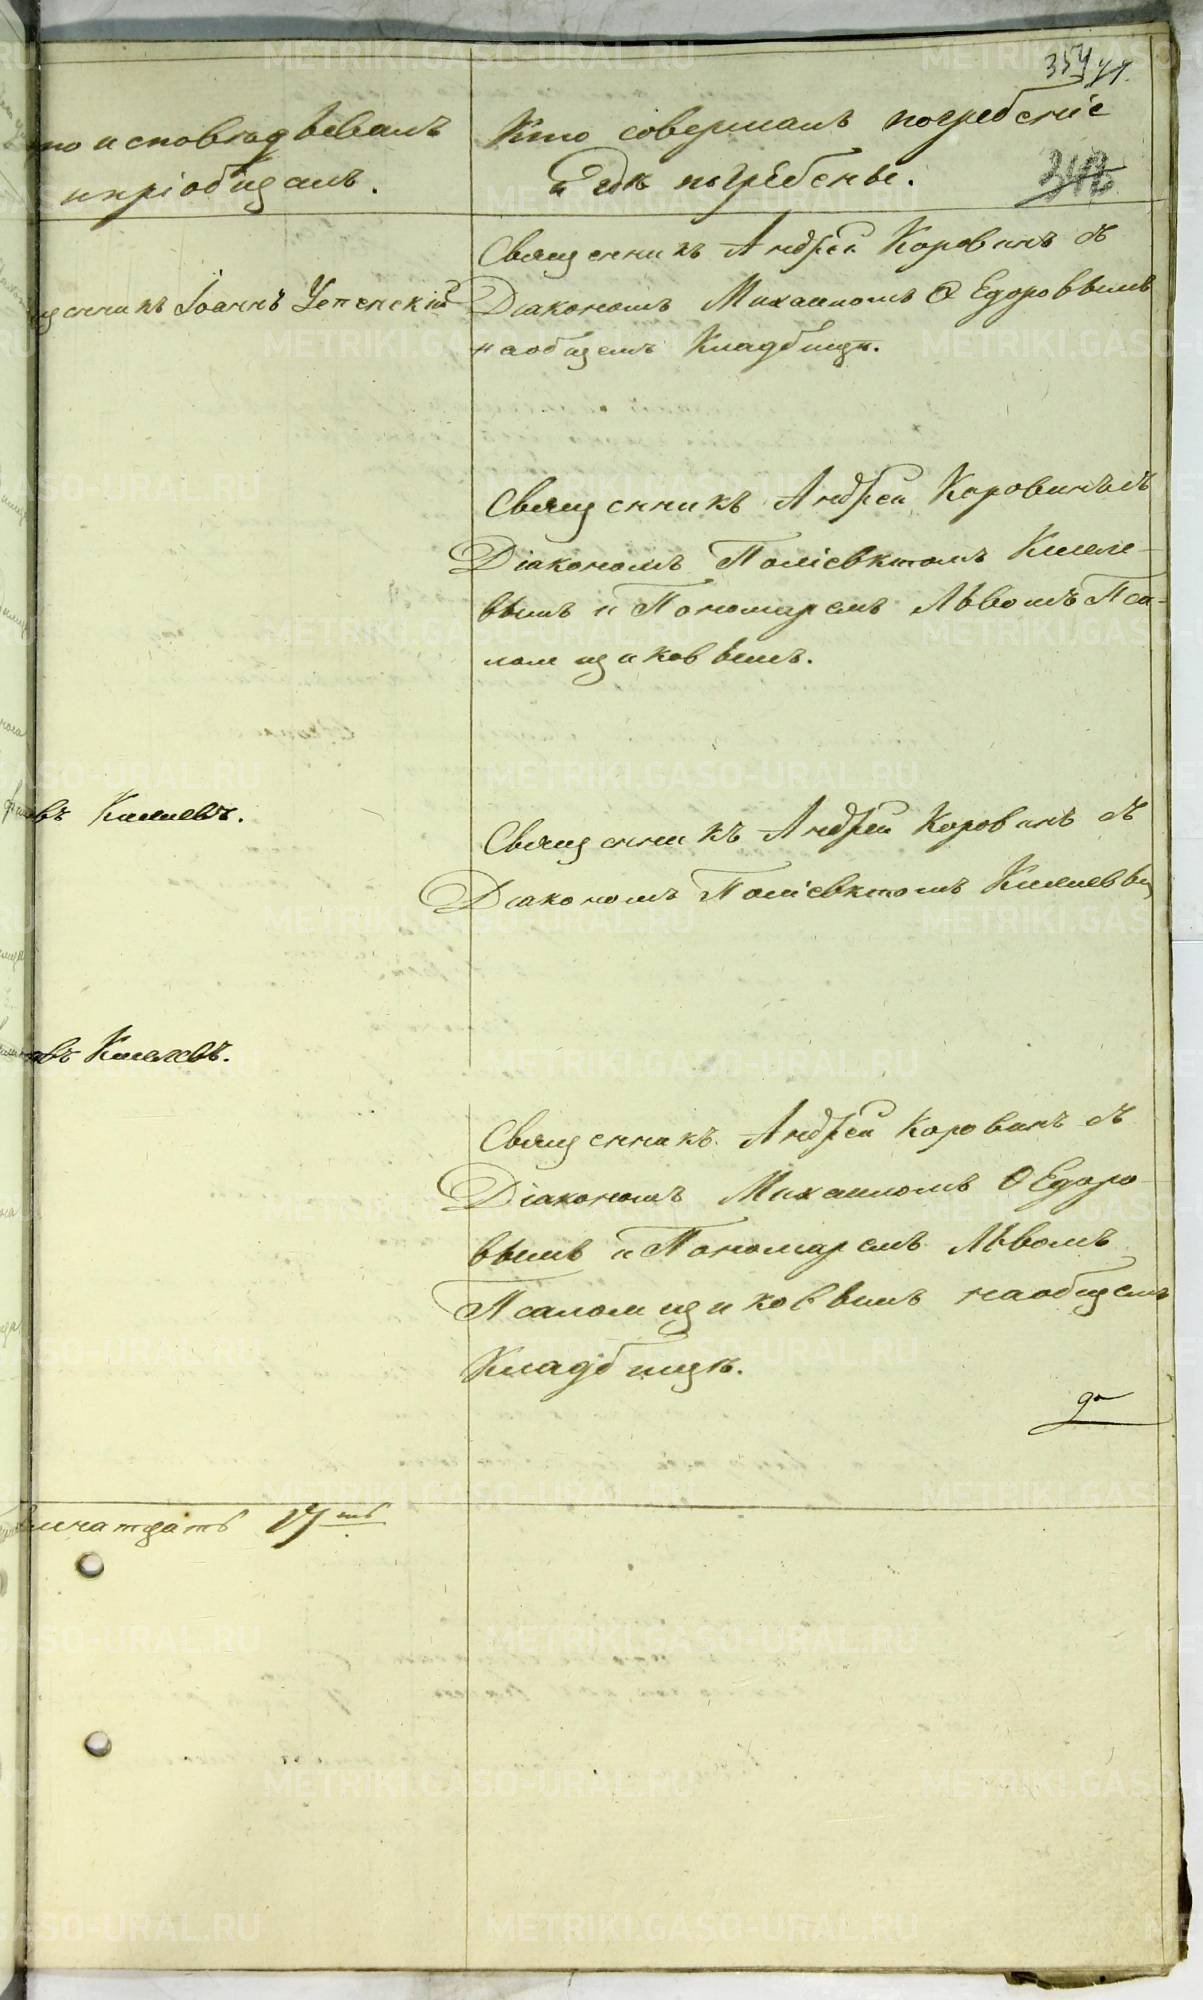 354
то исповѣдѣвалъ
ипріобщалъ.
Кто совершалъ погребеніе
и гдѣ погребены.
щенникъ Іоаннъ Успенскій
Священникъ Андрей Коровинъ съ
Діакономъ Михаиломъ Ѳедоровымъ
наобщемъ Кладбищѣ.
Священникъ Андрей Коровинъ съ
Діакономъ Поліевктомъ Киселе-
вымъ и Пономаремъ Львомъ Пса-
ломщиковымъ.
въ Киселевъ.
Священникъ Андрей Коровинъ съ
Діакономъ Поліевктомъ Киселевы
въ Киселевъ.
Священникъ Андрей Коровинъ съ
Діакономъ Михаиломъ Ѳедоро-
вымъ и Пономаремъ Львомъ
Псаломщиковымъ наобщемъ
Кладбищѣ.
17
METRIKI.GASO-URAL.RU